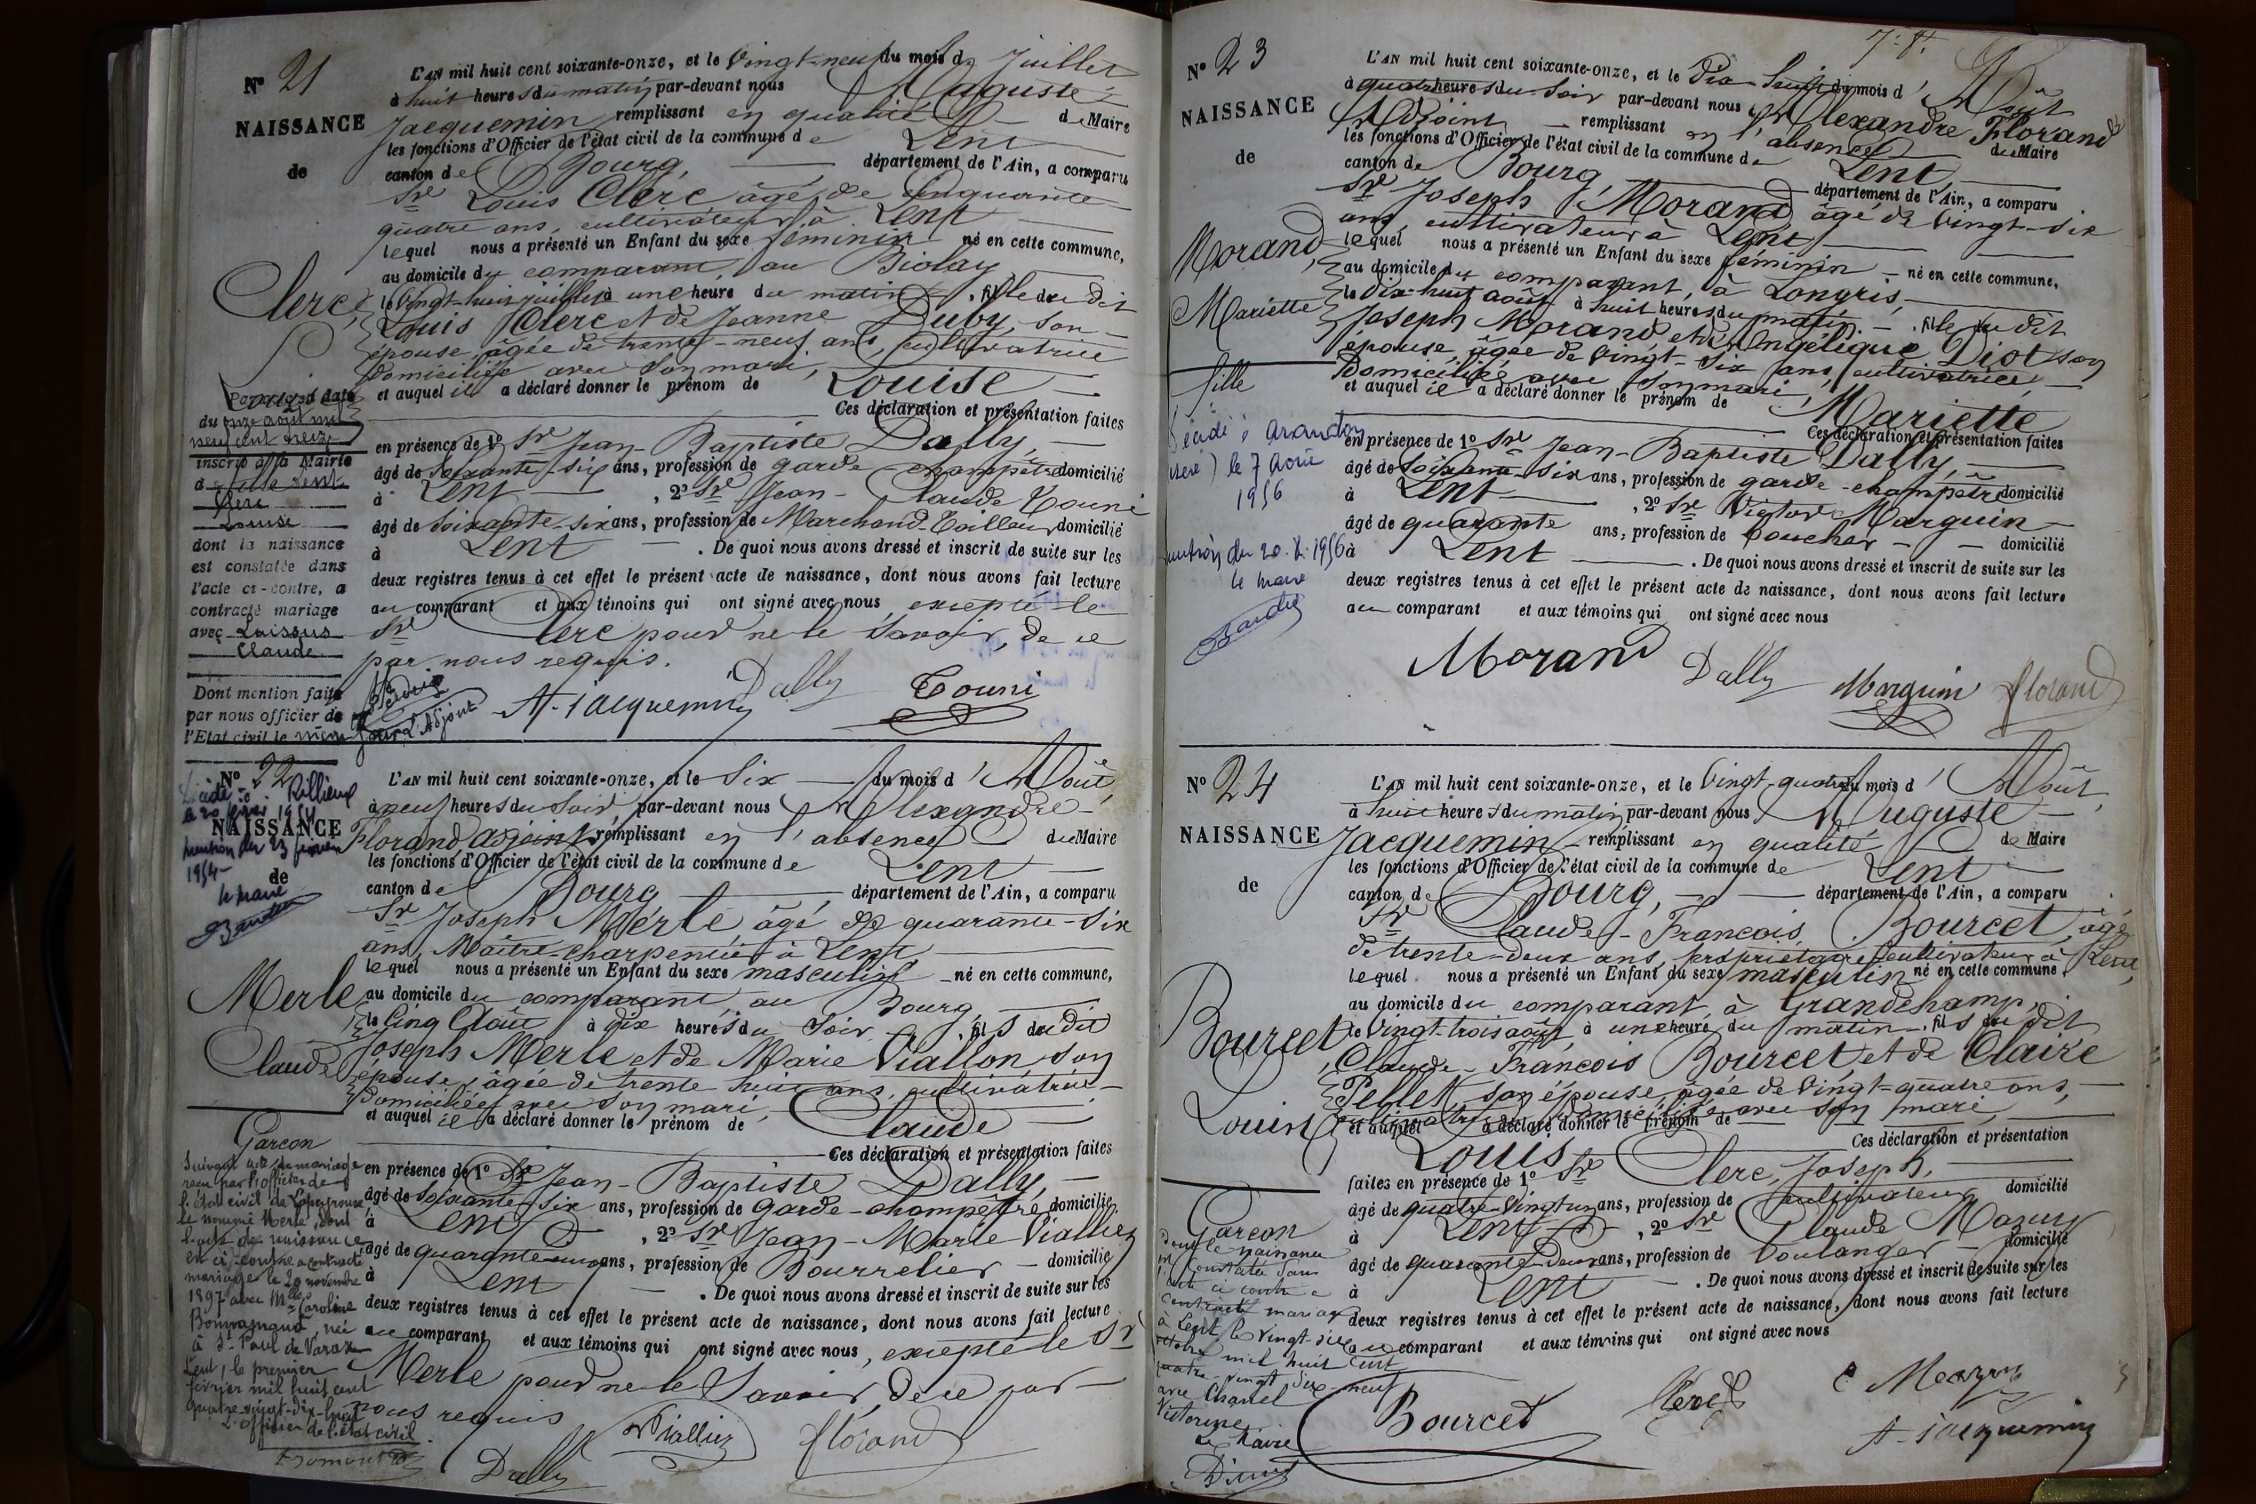 N° 21
NAISSANCE
de
Clerc,
Louise
Par acte en date
du onze août mil
neuf cent treize
inscrit à la Mairie
dont la naissance
est constatée dans
l'acte ci-contre, a
contracté mariage
avec Laissus
Claude
Dont mention faite
par nous officier de
l'Etat civil le même
jour L'Adjoint
L'AN mil huit cent soixante-onze, et le Vingt-neuf du mois de Juillet
à huit heures du matin par-devant nous Auguste
Jacquemin remplissant en qualité de Maire
les fonctions d'Officier de l'état civil de la commune de Lent
canton de Bourg, département de l'Ain, a comparu
Sr Louis Clerc âgé de Cinquante
quatre ans, cultivateur à Lent
lequel nous a présenté un Enfant du sexe féminin né en cette commune,
au domicile du comparant, au Biolay
le Vingt-huit juillet à une heure du matin, fille du dit
Louis Clerc et de Jeanne Duby, son
épouse, âgée de trente-neuf ans, cultivatrice
domiciliée avec son mari,
et auquel il a déclaré donner le prénom de Louise
Ces déclaration et présentation faites
en présence de 1° Sr Jean-Baptiste Dally,
âgé de soixante-six ans, profession de garde-champêtre domicilié
à Lent, 2° Sr Jean-Claude Couni
âgé de soixante-six ans, profession de Marchand-Tailleur domicilié
à Lent. De quoi nous avons dressé et inscrit de suite sur les
deux registres tenus à cet effet le présent acte de naissance, dont nous avons fait lecture
au comparant et aux témoins qui ont signé avec nous, excepté le
Sr Clerc pour ne le savoir, de ce
par nous requis.
A. Jacquemin Dally Couni
N° 22
NAISSANCE
de
Décédé à Rillieux
le 20 février 1954
mention du 23 février
1954
le maire
Merle
Claude
Garçon
Suivant acte de mariage
reçu par l'officier de
l'état civil de Lapeyrouse
le nommé Merle, dont
l'acte de naissance
est ci-contre a contracté
mariage le 20 novembre
1897 avec Mlle Caroline
née
à St Paul de Varax
Lent, le premier
février mil huit cent
quatre-vingt-dix-huit
L'officier de l'état civil
L'AN mil huit cent soixante-onze, et le Six du mois d'Août,
à neuf heures du Soir par-devant nous Alexandre
Florand adjoint remplissant en l'absence du Maire
les fonctions d'Officier de l'état civil de la commune de Lent
canton de Bourg, département de l'Ain, a comparu
Sr Joseph Merle âgé de quarante-six
ans, Maître-charpentier à Lent,
lequel nous a présenté un Enfant du sexe masculin né en cette commune,
au domicile du comparant, au Bourg,
le Cinq Août à dix heures du Soir, fils du dit
Joseph Merle et de Marie Viallon, son
épouse, âgée de trente huit ans, cultivatrice
domiciliée avec son mari,
et auquel il a déclaré donner le prénom de Claude
Ces déclaration et présentation faites
en présence de 1° Sr Jean-Baptiste Dally,
âgé de soixante six ans, profession de Garde-champêtre domicilié
à Lent, 2° Sr Jean-Marie Vialliez
âgé de quarante-un ans, profession de Bourrelier domicilié
à Lent. De quoi nous avons dressé et inscrit de suite sur les
deux registres tenus à cet effet le présent acte de naissance, dont nous avons fait lecture
au comparant et aux témoins qui ont signé avec nous, excepté le Sr
Merle pour ne le Savoir, de ce par
nous requis
Dally Vialliez Florand
N° 23
NAISSANCE
de
Morand,
Mariette
fille
Décédée à Arandon
(Isère) le 7 Août
1956
mention du 20.8.1956
le maire
L'AN mil huit cent soixante-onze, et le Dix-huit du mois d'Août
à quatre heures du Soir par-devant nous Alexandre Florand
Adjoint remplissant en l'absence du Maire
les fonctions d'Officier de l'état civil de la commune de Lent
canton de Bourg, département de l'Ain, a comparu
Sr Joseph Morand âgé de Vingt-six
ans, cultivateur à Lent,
lequel nous a présenté un Enfant du sexe féminin né en cette commune,
au domicile du comparant, à Longris,
le dix-huit août à huit heures du matin, fille du dit
Joseph Morand et de Angélique Diot son
épouse, âgée de Vingt-six ans, cultivatrice,
domiciliée avec son mari,
et auquel il a déclaré donner le prénom de Mariette
Ces déclaration et présentation faites
en présence de 1° Sr Jean-Baptiste Dally,
âgé de soixante-six ans, profession de garde-champêtre domicilié
à Lent, 2° Sr Victor Marguin
âgé de quarante ans, profession de boucher domicilié
à Lent. De quoi nous avons dressé et inscrit de suite sur les
deux registres tenus à cet effet le présent acte de naissance, dont nous avons fait lecture
au comparant et aux témoins qui ont signé avec nous
Morand Dally Marguin Florand
N° 24
NAISSANCE
de
Bourcet
Louis
Garçon
dont la naissance
est constatée dans
l'acte ci contre a
contracté mariage
à Lent le vingt-six
octobre mil huit cent
quatre-vingt dix-neuf
avec Chanel
Victorine
Le Maire
L'AN mil huit cent soixante-onze, et le Vingt-quatre du mois d'Août,
à huit heures du matin par-devant nous Auguste
Jacquemin remplissant en qualité de Maire
les fonctions d'Officier de l'état civil de la commune de Lent
canton de Bourg, département de l'Ain, a comparu
Sr Claude-François Bourcet, âgé
de trente-deux ans, propriétaire cultivateur à Lent,
lequel nous a présenté un Enfant du sexe masculin né en cette commune
au domicile du comparant, à Grandchamp,
le Vingt-trois août à une heure du matin, fils du dit
Claude-François Bourcet et de Claire
Pellet, son épouse, âgée de Vingt-quatre ans,
cultivatrice domiciliée avec son mari,
et auquel a déclaré donner le prénom de
Louis Ces déclaration et présentation
faites en présence de 1° Sr Clerc, Joseph,
âgé de quatre-vingt un ans, profession de cultivateur domicilié
à Lent, 2° Sr Claude Mazuy
âgé de quarante-deux ans, profession de boulanger domicilié
à Lent. De quoi nous avons dressé et inscrit de suite sur les
deux registres tenus à cet effet le présent acte de naissance, dont nous avons fait lecture
au comparant et aux témoins qui ont signé avec nous
Bourcet Clerc C Mazuy
A. Jacquemin